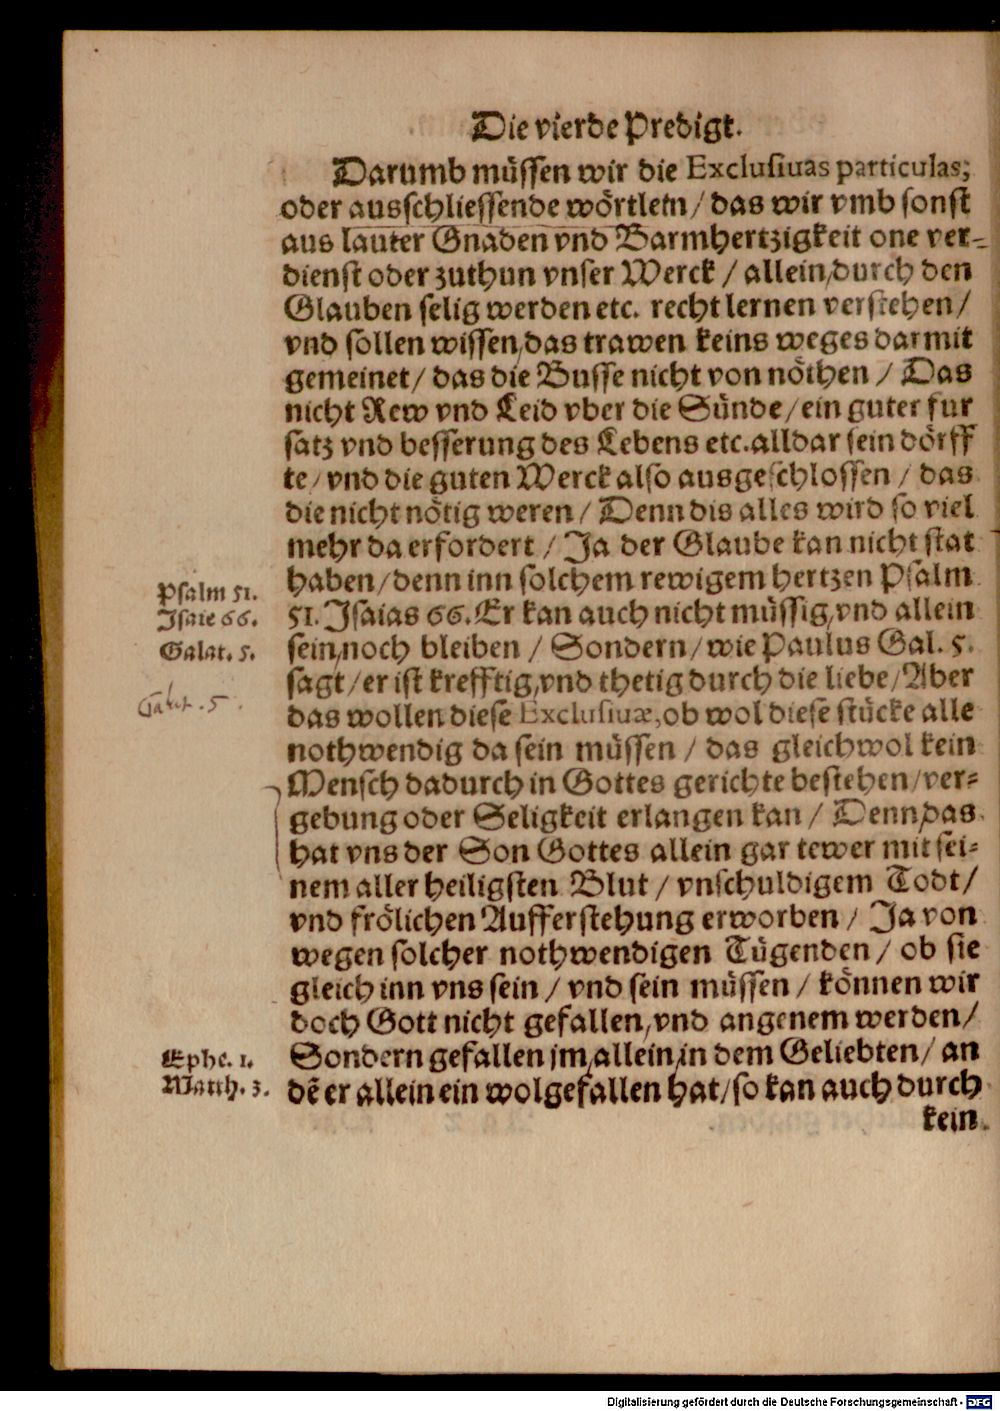 Die vierde Predigt.
Darumb müssen wir die Exclusiuas particulas,
oder ausschliessende wörtlein / das wir vmb sonst
aus lauter Gnaden vnd Barmhertzigkeit one ver-
dienst oder zuthun vnser Werck / allein, durch den
Glauben selig werden etc. recht lernen verstehen /
vnd sollen wissen, das trawen keins weges darmit
gemeinet / das die Busse nicht von nöthen / Das
nicht Rew vnd Leid vber die Sünde / ein guter fur
satz vnd besserung des Lebens etc. alldar sein dörff
te / vnd die guten Werck also ausgeschlossen / das
die nicht nötig weren / Denn dis alles wird so viel
mehr da erfordert / Ja der Glaube kan nicht stat
haben / denn inn solchem rewigem hertzen Psalm
Psalm 51.
51. Isaias 66. Er kan auch nicht müssig, vnd allein
Isaie 66.
sein, noch bleiben / Sondern / wie Paulus Gal. 5.
Galat. 5.
sagt / er ist krefftig, vnd thetig durch die liebe / Aber
Galat. 5.
das wollen diese Exclusiuæ, ob wol diese stücke alle
nothwendig da sein müssen / das gleichwol kein
Mensch dadurch in Gottes gerichte bestehen / ver-
gebung oder Seligkeit erlangen kan / Denn, das
hat vns der Son Gottes allein gar tewer mit sei-
nem aller heiligsten Blut / vnschuldigem Todt /
vnd frölichen Aufferstehung erworben / Ja von
wegen solcher nothwendigen Tügenden / ob sie
gleich inn vns sein / vnd sein müssen / können wir
doch Gott nicht gefallen, vnd angenem werden /
Sondern gefallen jm, allein, in dem Geliebten / an
Ephe. 1.
dē er allein ein wolgefallen hat / so kan auch durch
Matth. 3.
kein
Digitalisierung gefördert durch die Deutsche Forschungsgemeinschaft - DFG